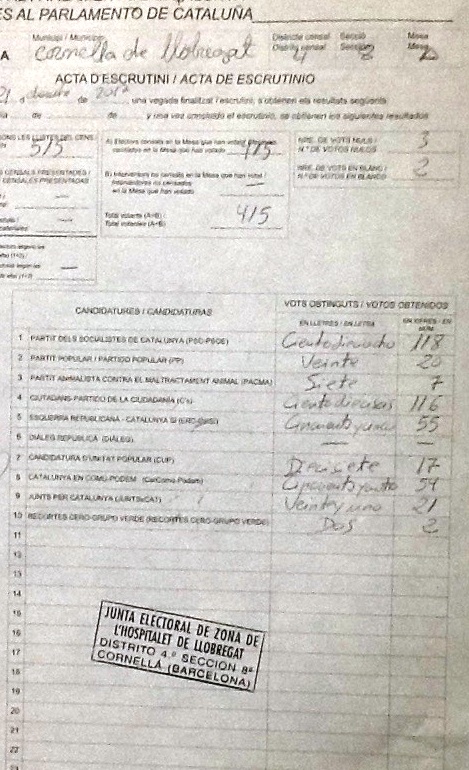 ES AL PARLAMENTO DE CATALUÑA
Municipi / Municipio
Districte censal Secció Mesa
A Cornella de Llobregat Distrito censal 4 Sección 8
ACTA D'ESCRUTINI / ACTA DE ESCRUTINIO
21 de de una vegada finalitzat l'escrutini, s'obtenen els resultats següents
de de y una vez concluido el escrutinio, se obtienen los siguientes resultados
515
A) Electors censats en la Mesa que han votat
censados en la Mesa que han votado
NRE. DE VOTS NULS /
N.º DE VOTOS NULOS 3
CENSALS PRESENTADAS
B) Interventors no censats en la Mesa que han votat /
Interventores no censados
en la Mesa que han votado —
NRE. DE VOTS EN BLANC /
N.º DE VOTOS EN BLANCO 2
Total votants (A+B) /
Total votantes (A+B) 415
CANDIDATURES / CANDIDATURAS
VOTS OBTINGUTS / VOTOS OBTENIDOS
EN LLETRES / EN LETRA
EN XIFRES / EN NÚM.
1 PARTIT DELS SOCIALISTES DE CATALUNYA (PSC-PSOE) Cientodieciocho 118
2 PARTIT POPULAR / PARTIDO POPULAR (PP) Veinte 20
3 PARTIT ANIMALISTA CONTRA EL MALTRACTAMENT ANIMAL (PACMA) Siete 7
4 CIUTADANS-PARTIDO DE LA CIUDADANÍA (C's) Cientodieciseis 116
5 ESQUERRA REPUBLICANA - CATALUNYA SÍ (ERC-CatSí) 55
6 DIÀLEG REPUBLICÀ (DIÀLEG) — —
7 CANDIDATURA D'UNITAT POPULAR (CUP) Diecisiete 17
8 CATALUNYA EN COMÚ-PODEM (CatComú-Podem) 54
9 JUNTS PER CATALUNYA (JUNTSxCAT) Veintiyuno 21
10 RECORTES CERO-GRUPO VERDE (RECORTES CERO-GRUPO VERDE) Dos 2
11
12
13
14
15
16
17
18
19
20
21
22
JUNTA ELECTORAL DE ZONA DE
L'HOSPITALET DE LLOBREGAT
DISTRITO 4.º SECCION 8ª
CORNELLÁ (BARCELONA)